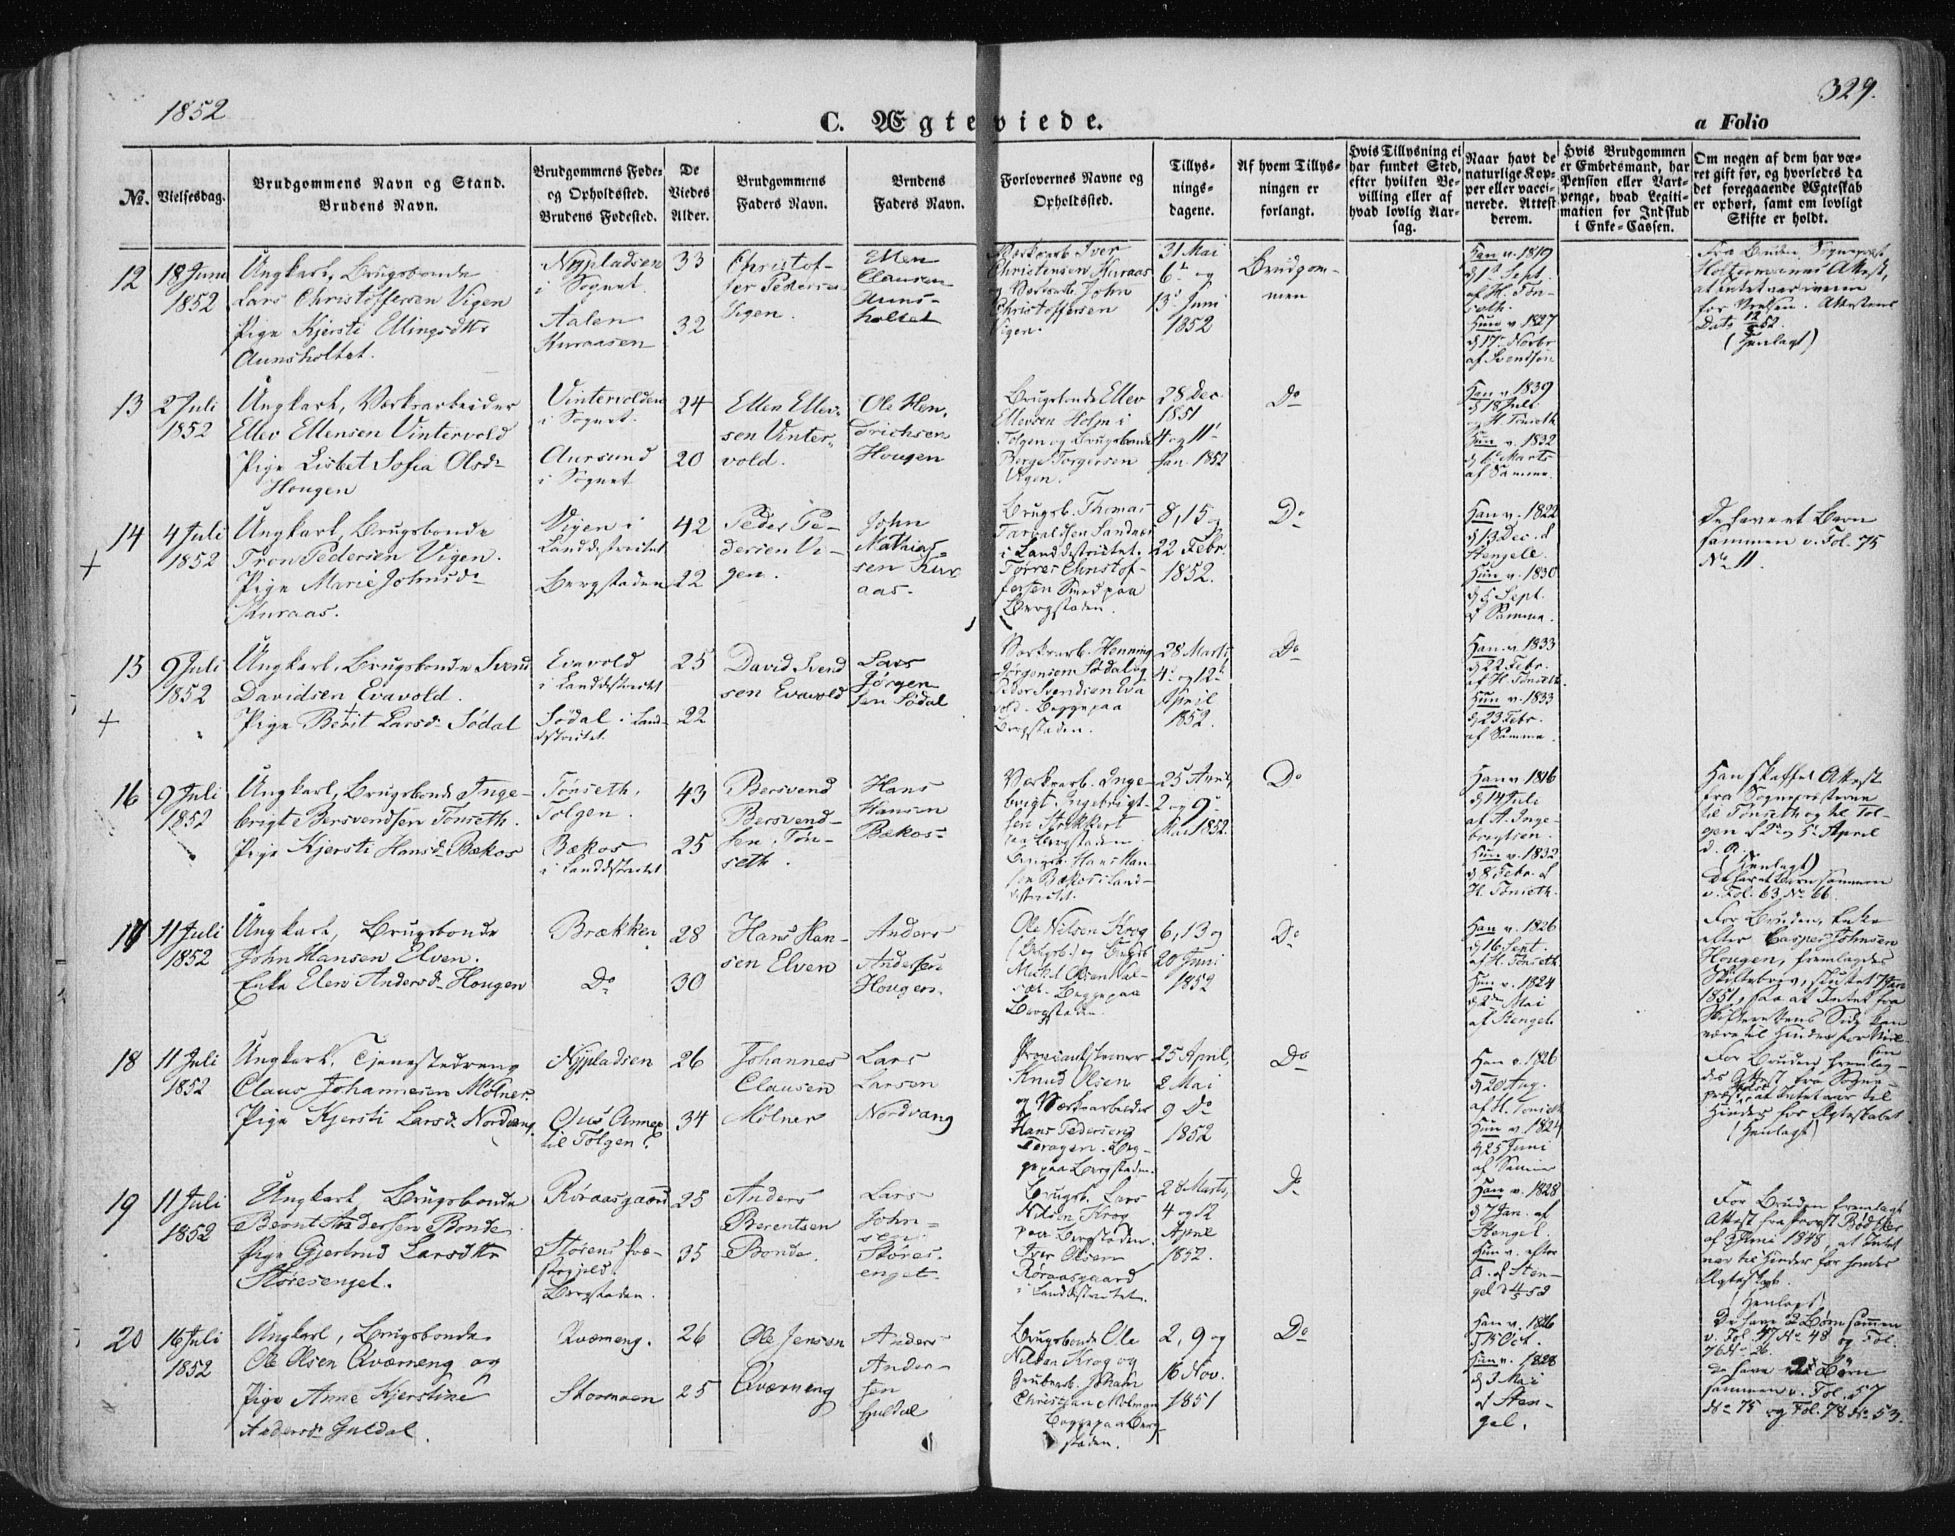 1852
329.
C. Ægteviede.
a Folio
No.
Vielsesdag.
Brudgommens Navn og Stand.
Brudens Navn.
Brudgommens Føde-
og Opholdssted.
Brudens Fødested.
De
Viedes
Alder.
Brudgommens
Faders Navn.
Brudens
Faders Navn.
Forlovernes Navne og
Opholdssted.
Tillys-
nings-
dagene.
Af hvem Tillys-
ningen er
forlangt.
Hvis Tillysning ei
har fundet Sted,
efter hvilken Be-
villing eller af
hvad lovlig Aar-
sag.
Naar havt de
naturlige Kop-
per eller vacci-
nerede. Attest
derom.
Hvis Brudgommen
er Embedsmand, har
Pension eller Vart-
penge, hvad Legiti-
mation for Indskud
i Enke-Cassen.
Om nogen af dem har væ-
ret gift før, og hvorledes da
det foregaaende Ægteskab
er ophørt, samt om lovligt
Skifte er holdt.
12
18 Juni
1852
Ungkarl, Brugsbonde
Lars Christoffersen Vigen
Pige Kjersti Ellingsdtr
Aunsholtet.
Nypladsen
i Sognet.
Aalen
Kuraasen
33
32
Christof-
fer Pedersen
Vigen.
Ellen
Clausen
Auns-
holtet
Værksarb. Iver
Christensen Kuraas
og Værksarb. John
Christoffersen
Vigen.
31 Mai
6te og
13de Juni
1852
Brudgom-
men
Han v. 1819
d 12 Sept.
af H. Tön-
seth.
Hun v. 1827
d 17 Novbr
af Svendsen
Fra Bruden Sogneprest
Holtermanns Attest,
at intet var iveien
for Vielsen. Attestens
(Henlagt)
13
2 Juli
1852
Ungkarl, Værksarbeider
Ellev Ellevsen Vintervold
Pige Lisbet Sofia Olsdr
Hougen
Vintervolden
i Sognet.
Aursund
i Sognet
24
20
Ellev Ellev-
sen Vinter-
vold.
Ole Hen-
drichsen
Hougen
Brugsbonde Ellev
Ellevsen Holm i
Tolgen og Brugsbonde
Borge Torgersen
Vigen.
28 Dec
1851
4 og 11
Jan. 1852
Do
Han v. 1839
d 18 Juli
af H. Tönseth
Hun v. 1832
d 6 Marts
af Samme.
14
4 Juli
1852
Ungkarl, Brugsbonde
Tron Pedersen Vigen.
Pige Marie Johnsdr
Kuraas.
Vigen i
Landdistrictet
Bergstaden
42
22
Peder Pe-
dersen Vi-
gen.
John
Mathias-
sen Kur
aas.
Brugsb. Thomas
Tarbaldsen Sandnes
i Landdistrictet.
Torres Christof-
fersen Smed paa
Bergstaden.
8, 15 og
22 Febr.
1852.
Do
Han v. 1822
d 13 Dec. af
Stengele.
Hun v. 1830
d 5 Sept.
af Samme.
De have et Barn
sammen v. Fol. 75
No 11.
15
9 Juli
1852
Ungkarl, Brugsbonde Svend
Davidsen Evavold.
Pige Berit Larsdr Södal
Evavold
i Landdistrictet
Södal i Land-
districtet.
25
22
David Svend
sen Evavold
Lars
Jörgen
sen Södal
Værksarb. Henning
Jörgensen Södal og
Peder Svendsen Eva
vold. Beggepaa
Bergstaden.
28 Marts
4 og 12
April
1852.
Do
Han v. 1833
d 22 Febr.
af H. Tönseth.
Hun v. 1833
d 23 Febr.
af Samme.
16
9 Juli
1852
Ungkarl, Brugsbonde Inge-
brigt Bersvendsen Tönseth.
Pige Kjersti Hansdr Bækos
Tönseth,
Tolgen.
Bækos
i Landdistrictet
43
25
Bersvend
Bersvend-
sen Tön-
seth.
Hans
Hansen
Bækos
Værksarb. Inge-
brigt Ingebrigt-
sen Stikkert
paa Bergstaden.
Brugsb. Hans Han-
sen Bækos i Land-
districtet.
25 April,
2 og 9
Mai 1852.
Do
Han v. 1816
d 14 Juli
af A. Inge-
brigtsen.
Hun v. 1832
d 8 Febr. af
H. Tönseth.
Han skaffet Attest
fra Sognepresterne
til Tönseth og til Tol-
gen af 2 og 5 April
d. A.
(Henlagt)
De have et Barn sammen
v. Fol. 63 No 66.
17
11 Juli
1852
Ungkarl, Brugsbonde
John Hansen Elven.
Enke Elen Andersdr Hougen
Brækken
Do
28
30
Hans Han-
sen Elven
Anders
Andersen
Hougen.
Ole Nilsen Krog
Beggepaa
Bergstaden.
6, 13 og
20 Juni
1852
Do
Han v. 1826
d 16 Sept.
af H. Tönseth
Hun v. 1824
d 2 Mai
af Stengel.
For Bruden, Enke
efter Casper Johnsen
Hougen, fremlagdes
Skiftebrev, sluttet
1851, saa at Intet fra
Skifterettens Side kan
være til Hinder for Viel-
sen
18
11 Juli
1852
Ungkarl, Tjenestedreng
Claus Johannesen Mölner.
Pige Kjersti Larsdr Nordvang
Nypladsen
Os Annex
til Tolgen
26
34
Johannes
Clausen
Mölner
Lars
Larsen
Nordvang
Proviantskriver
Knud Olsen
og Værksarbeider
Hans Pedersen
Feragen. Beg-
ge paa Bergstaden.
25 April,
2 Mai
9 Do
1852
Do
Han v. 1826
d 20 Aug.
af H. Tönseth
Hun v. 1824
d 25 Juni
af Samme
For Bruden fremlag-
des Attest fra Sogne-
præst, at Intet var til
Hinder for Ægteskabet
(Henlagt)
19
11 Juli
1852
Ungkarl, Brugsbonde
Bernt Andersen Bonde
Pige Gjertrud Larsdtr
Störesenget.
Röraasgaard
Störens Præ-
stegjeld.
Bergstaden.
25
35
Anders
Berentsen
Bonde.
Lars
John-
sen
Störes-
enget.
Brugsb. Lars
Nilsen Krog
paa Bergstaden.
Iver Olsen
Röraasgaard
i Landdistrictet.
28 Marts,
4 og 12
April
1852.
Do
Han v. 1828
d 7 Jan. af
Stengel
Hun v. efter
A. af Sten-
gel
For Bruden fremlagt
Attest fra Provst Bödtker
af Juni 1848, at Intet
var til Hinder for hendes
Ægteskab.
(Henlagt)
20
16 Juli
1852
Ungkarl, Brugsbonde
Ole Olsen Qværneng og
Pige Anne Kjerstine
Andersdr Guldal.
Kværneng.
Stormoen
26
25
Ole Jensen
Qværneng
Anders
Ander-
sen
Guldal
Brugsbonde Ole
Nilsen Krog og
Grubearb. Johan
Christian Molman
Beggepaa Berg-
staden.
2, 9 og
16 Nov.
1851
Do
Han v. 1826
d 15 Oct.
Hun v. 1828
d 3 Mai
af Sten-
gel.
De have 2 Børn sammen
v. Fol. 57 No 48 og Fol.
76 No 26.
De have 2 Børn
sammen v. Fol. 57
No 75 og Fol. 78 No 53.